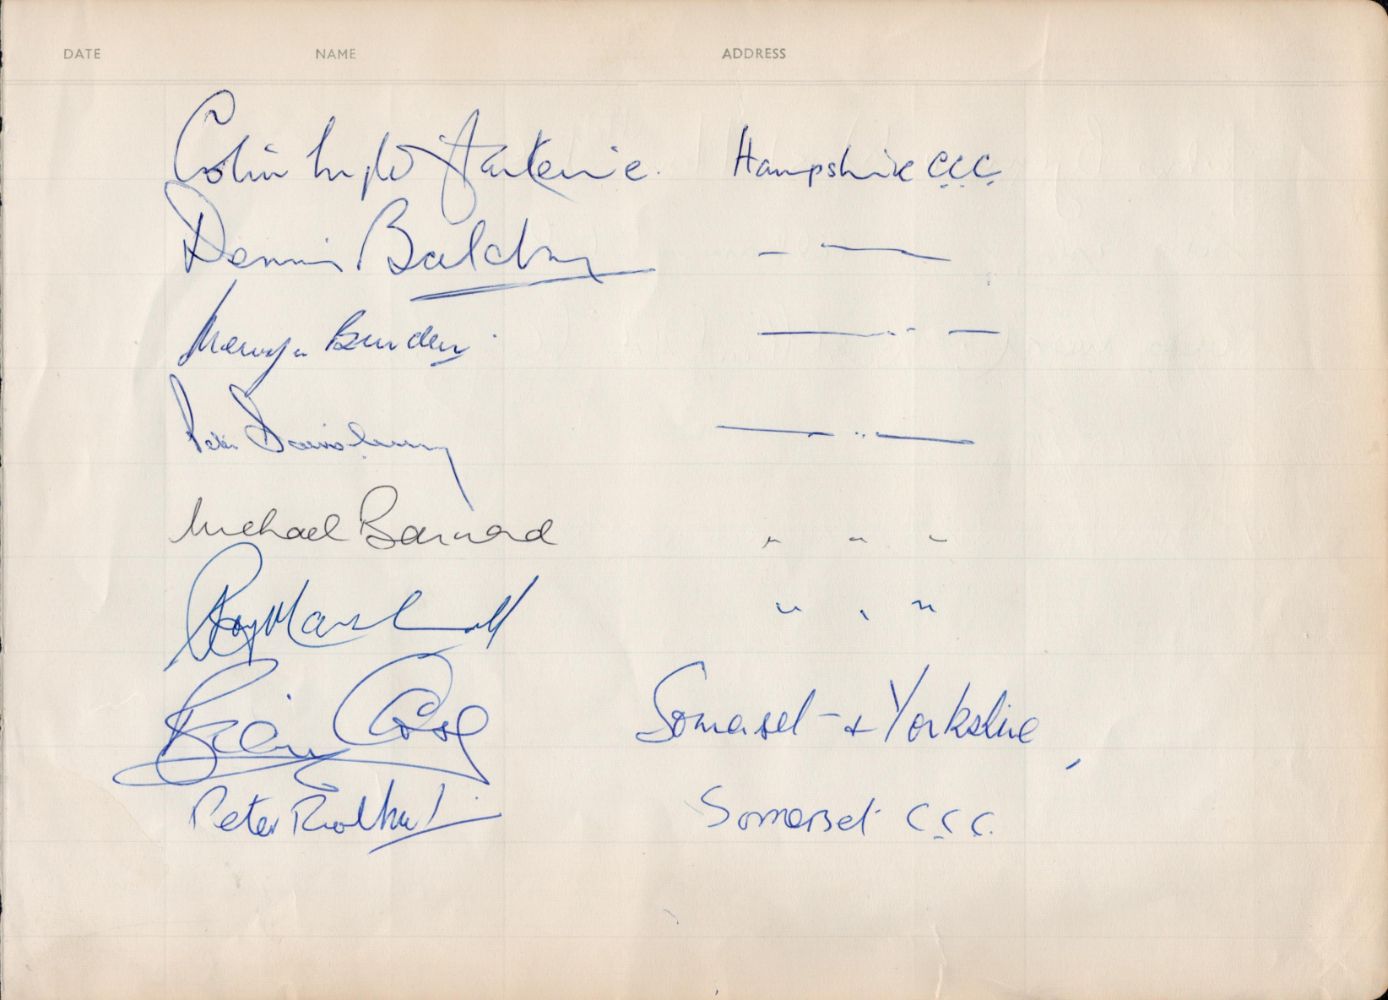 DATE NAME ADDRESS
Colin Ingleby-Mackenzie. Hampshire CCC
Dennis Baldry — —
Mervyn Burden. — " —
Peter Sainsbury — " —
Michael Barnard " " "
Roy Marshall " " "
Brian Close Somerset & Yorkshire
Peter Somerset C.C.C.